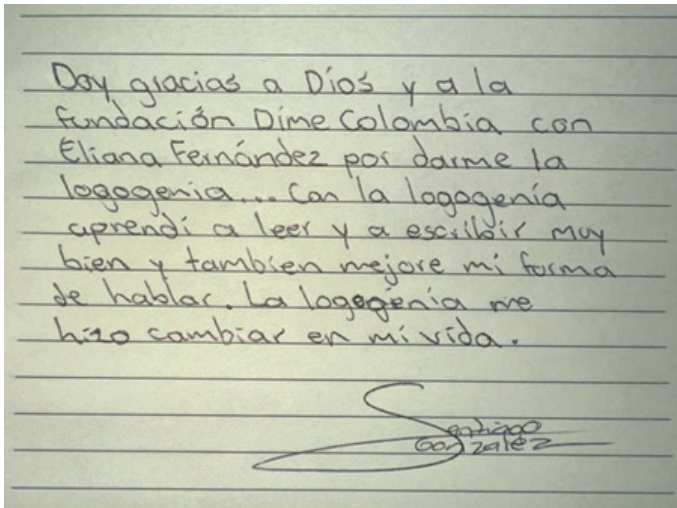 Doy gracias a Díos y a la
fundación Díme Colombia con
Eliana Fernández por darme la
logogenia... Con la logogenía
aprendí a leer y a escribir muy
bien y tambien mejore mi forma
de hablar. La logogenía me
hizo cambiar en mi vida.
Santiago
Gonzalez